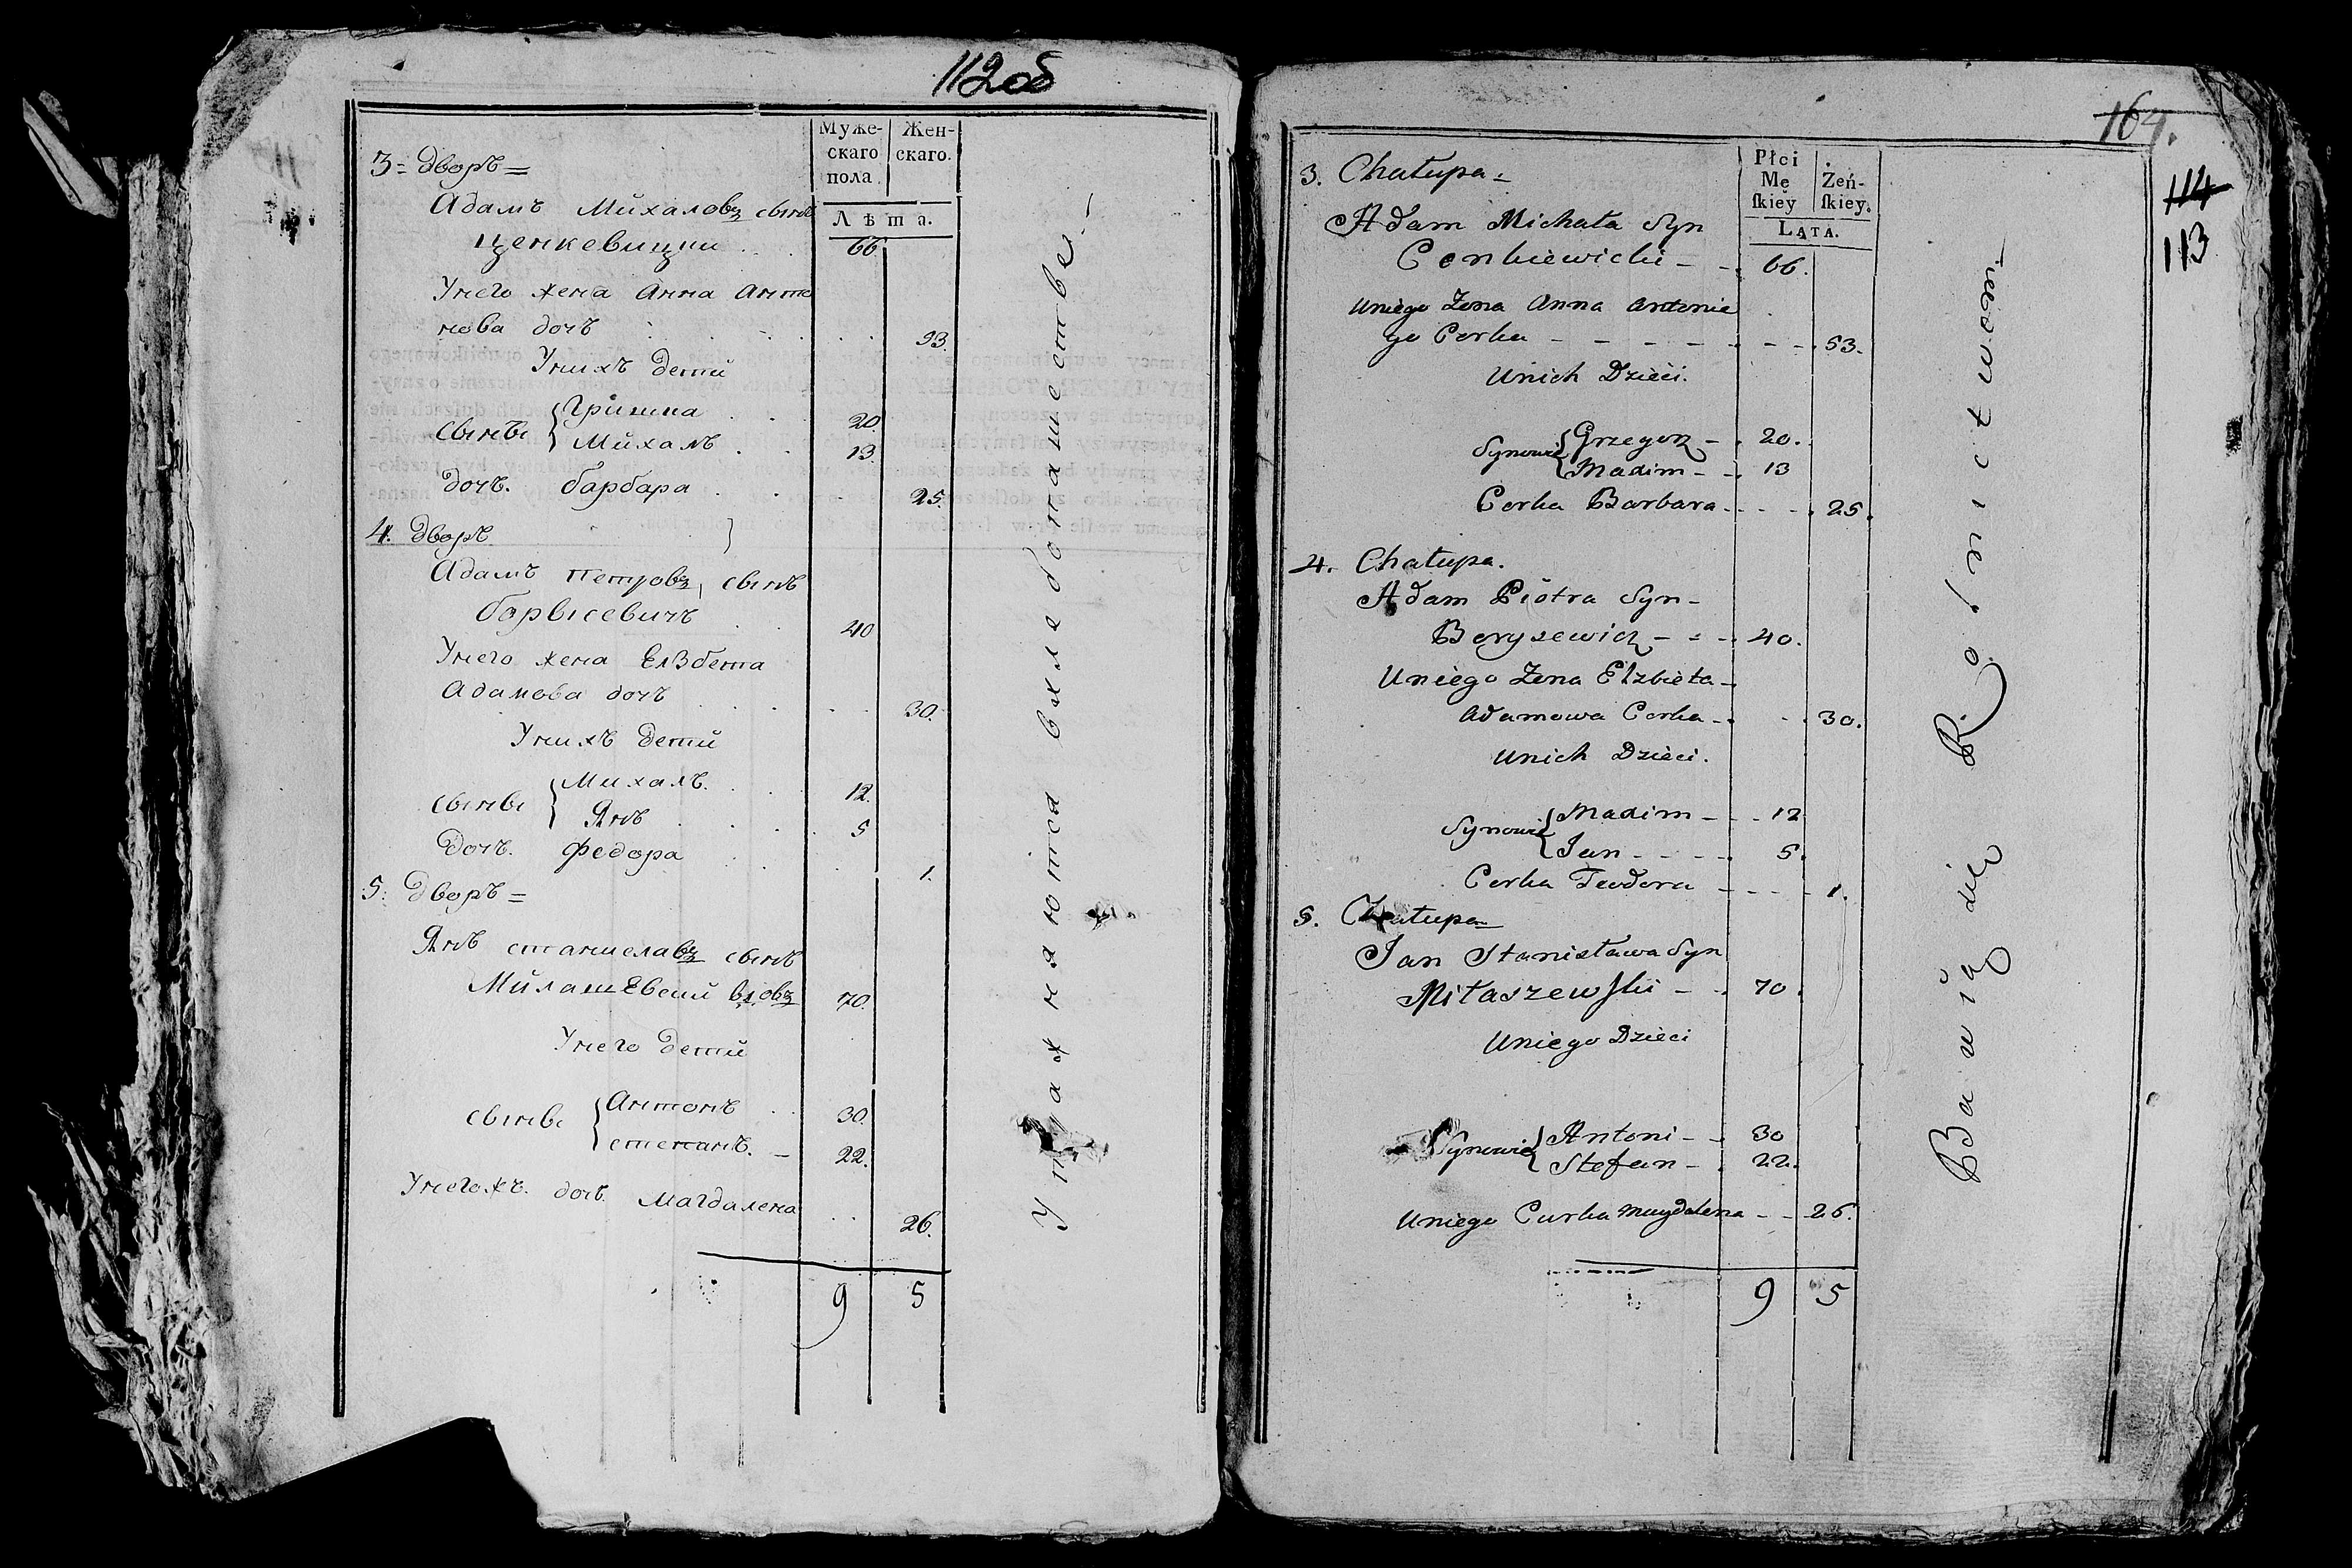 112об
Муже-
скаго
пола
Жен-
скаго.
Лѣта.
3= дворъ=
Адамъ Михаловъ сынъ
Ценкевицки . . 66
Унего жена Анна Анто
нова дочъ . . . . . 93
Унихъ дети
сынве { Гришка . . 20
Михалъ . . 13
дочъ. барбара . . . 25.
4. дворъ
Адамъ Петровъ, сынъ
борысевичъ . . 40
Унего жена Елзбета
Адамова дочъ . . . . . 30.
Унихъ дети
сынве { Михалъ. . . 12.
Янъ . . . . 5
дочъ. федора . . . 1.
5: дворъ=
Янъ станиславъ сынъ
Милашевски вдовъ 70.
Унего дети
сынве { Антонъ . . 30.
степанъ. – 22.
Унегожъ. дочъ. Магдалена . . 26.
9 5
Упражняются вхлебопашестве.–
164.
114
113
Płci
Mę
ſkiey
Żeń-
ſkiey.
LATA.
3. Chałupa=
Adam Michała Syn
Cenkiewicki – – 66.
Uniego Zona Anna Antonie
go Corka – – – – – – – 53.
Unich Dzieci.
Synowie { Grzegorz – . 20.
Maxim – . 13
Corka Barbara . – – . 25.
4. Chałupa.
Adam Piotra Syn–
Borysewicz – – – 40.
Uniego Zena Elzbieta–
Adamowa Corka – . – . 30.
Unich Dzieci.
Synowie { Maxim – . – 12
Jan – – – – . 5.
Corka Teodora – – – – 1.
5. Chałupa=
Jan Stanisława Syn
Miłaszewſki – – 70.
Uniego Dzieci
Synowie { Antoni – – 30
Stefan – . 22.
Uniego Curka Magdalena – – 26.
9 5
Bawią się Rolnictwom.–